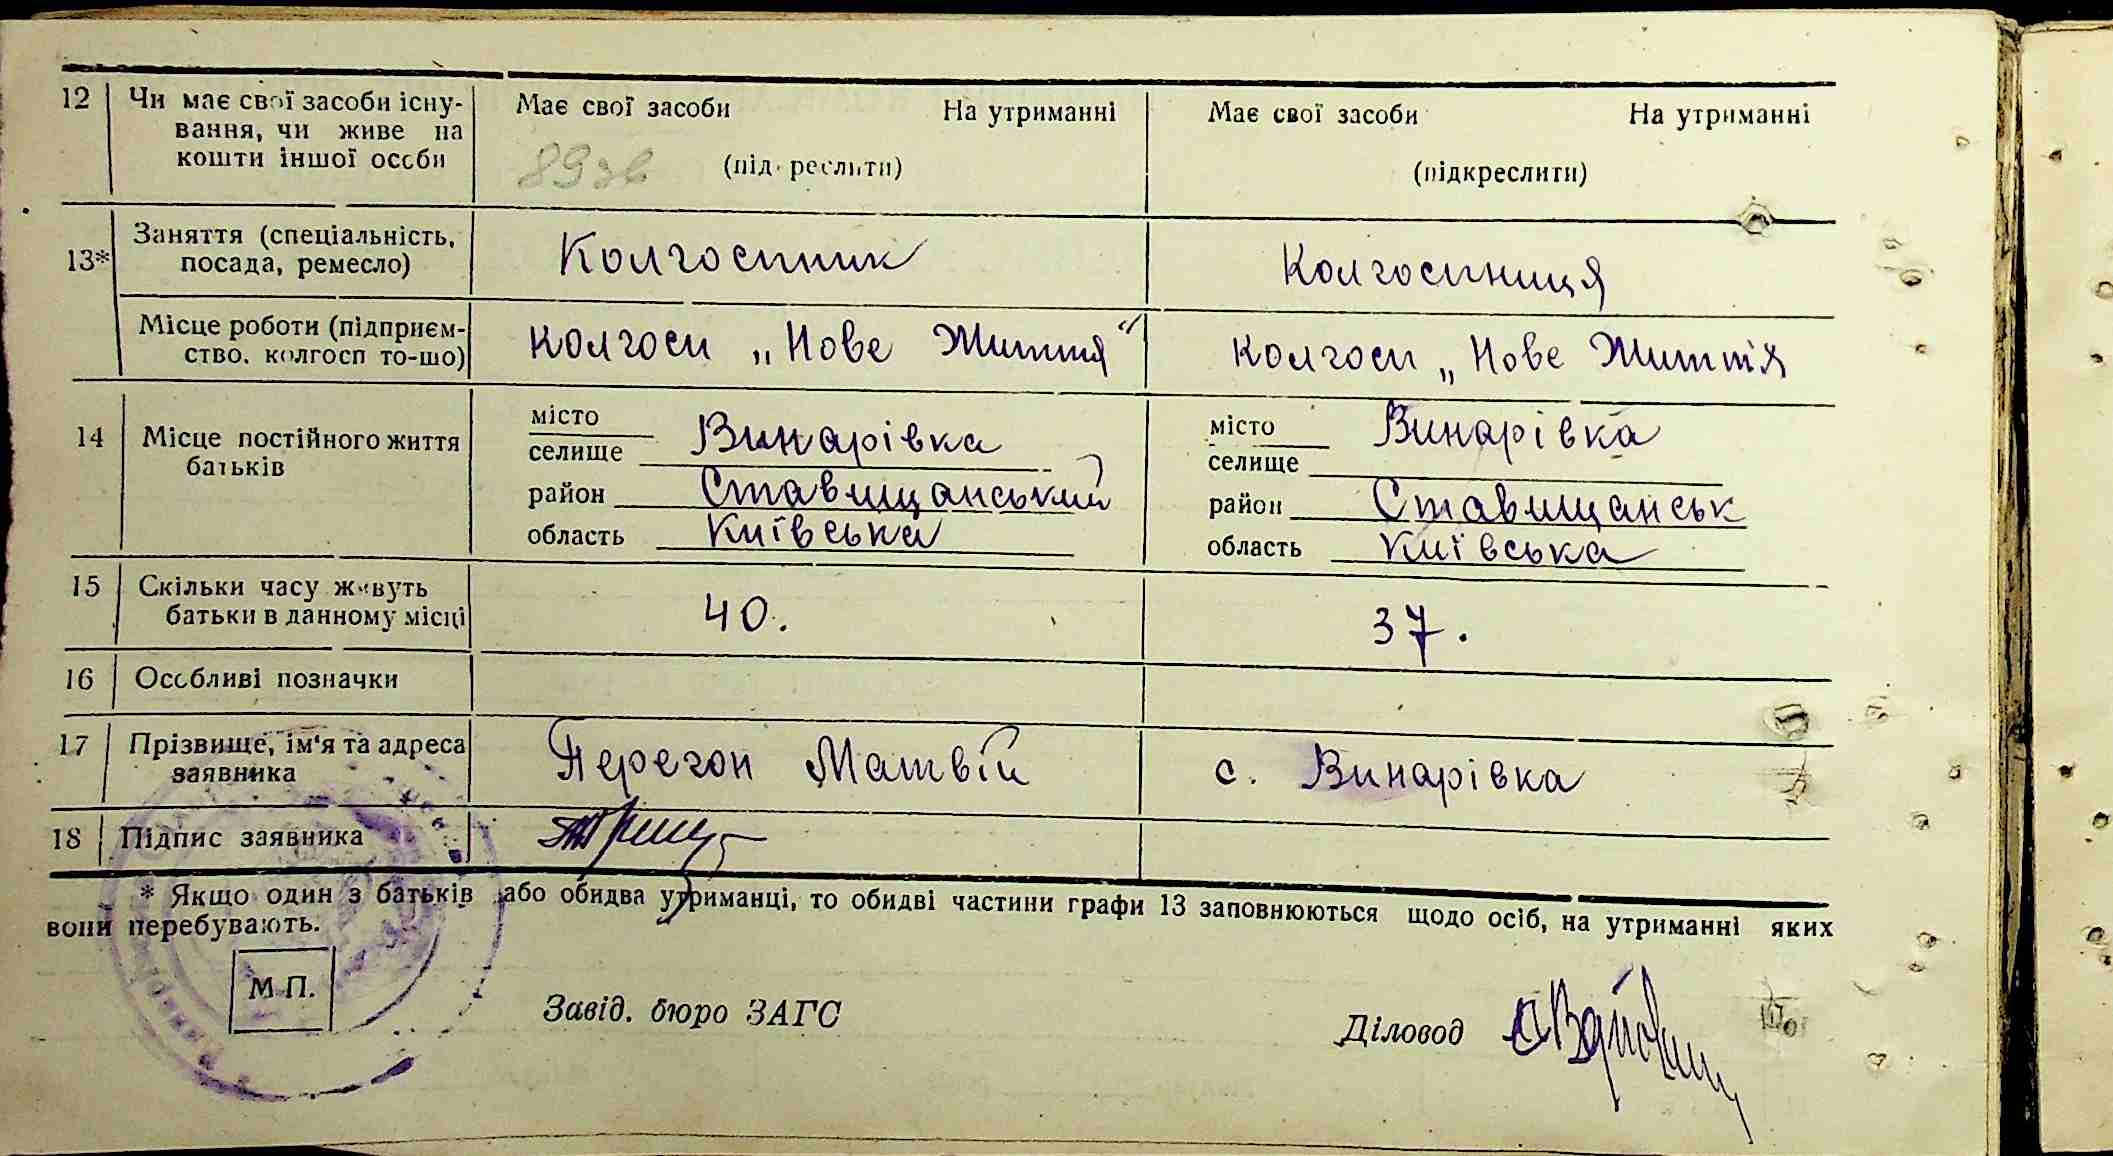 12 Чи має свої засоби існу- Має свої засоби На утриманні Має свої засоби На утриманні
вання, чи живе на
кошти іншої особи (підкреслити) (підкреслити)
Заняття (спеціальність, Колгоспник Колгоспниця
13* посада, ремесло)
Місце роботи (підприєм- колгосп „Нове Життя“ колгосп „Нове Життя
ство, колгосп то-що)
14 Місце постійного життя місто Винарівка місто Винарівка
батьків селище селище
район Ставищанський район Ставищанськ
область Київська область Київська
15 Скільки часу живуть 40. 37.
батьки в данному місці
16 Особливі позначки
17 Прізвище, ім'я та адреса Перегон Матвій с. Винарівка
заявника
18 Підпис заявника
* Якщо один з батьків або обидва утриманці, то обидві частини графи 13 заповнюються щодо осіб, на утриманні яких
вони перебувають.
М.П.
Завід. бюро ЗАГС Діловод